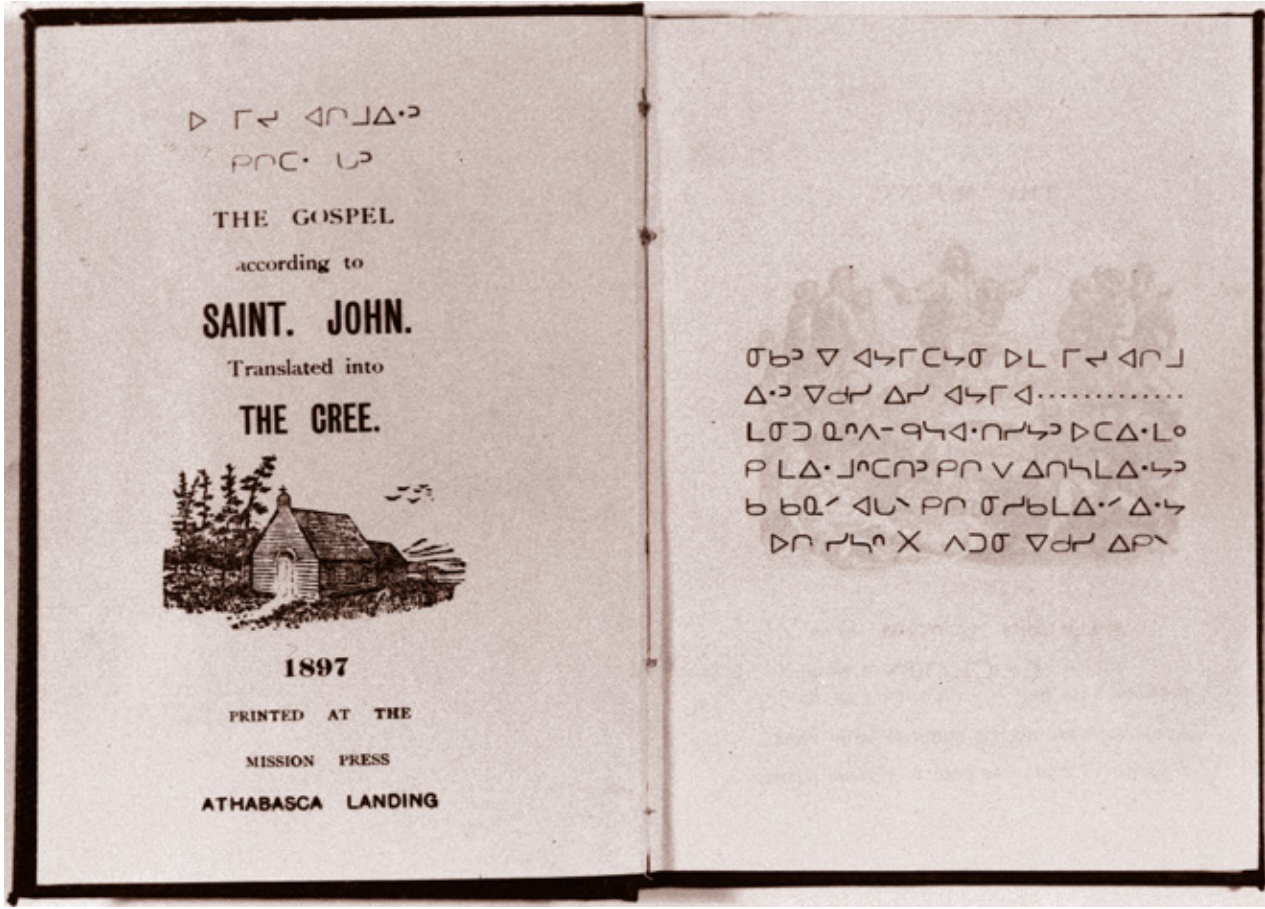 ᐅ ᒥᔪ ᐊᒋᒧᐃᐧᐣ
ᑭᒋᑕᐧ ᒐᐣ
THE GOSPEL
according to
SAINT. JOHN.
Translated into
THE CREE.
1897
PRINTED AT THE
MISSION PRESS
ATHABASCA LANDING
ᓂᑲᐣ ᐁ ᐊᔭᒥᑕᔭᓂ ᐅᒪ ᒥᔪ ᐊᒋᒧ
ᐃᐧᐣ ᐁᑯᓯ ᐃᓯ ᐊᔭᒥᐊ·············
ᒪᓂᑐ ᓇᐢᐱᐨ ᑫᓴᐊᐧᑎᓯᔭᐣ ᐅᑕᐃᐧᒪᐤ
ᑭ ᒪᐃᐧᒧᐢᑕᑎᐣ ᑭᒋ ᐯ ᐃᑎᓴᒪᐃᐧᔭᐣ
ᑲ ᑲᓇᐟ ᐊᒐᐠ ᑭᒋ ᓂᓯᑲᒪᐃᐧᐟ ᐃᐧᔭ
ᐅᒋ ᓯᓴᐢ ᙭ ᐱᑐᓂ ᐁᑯᓯ ᐃᑭᐠ